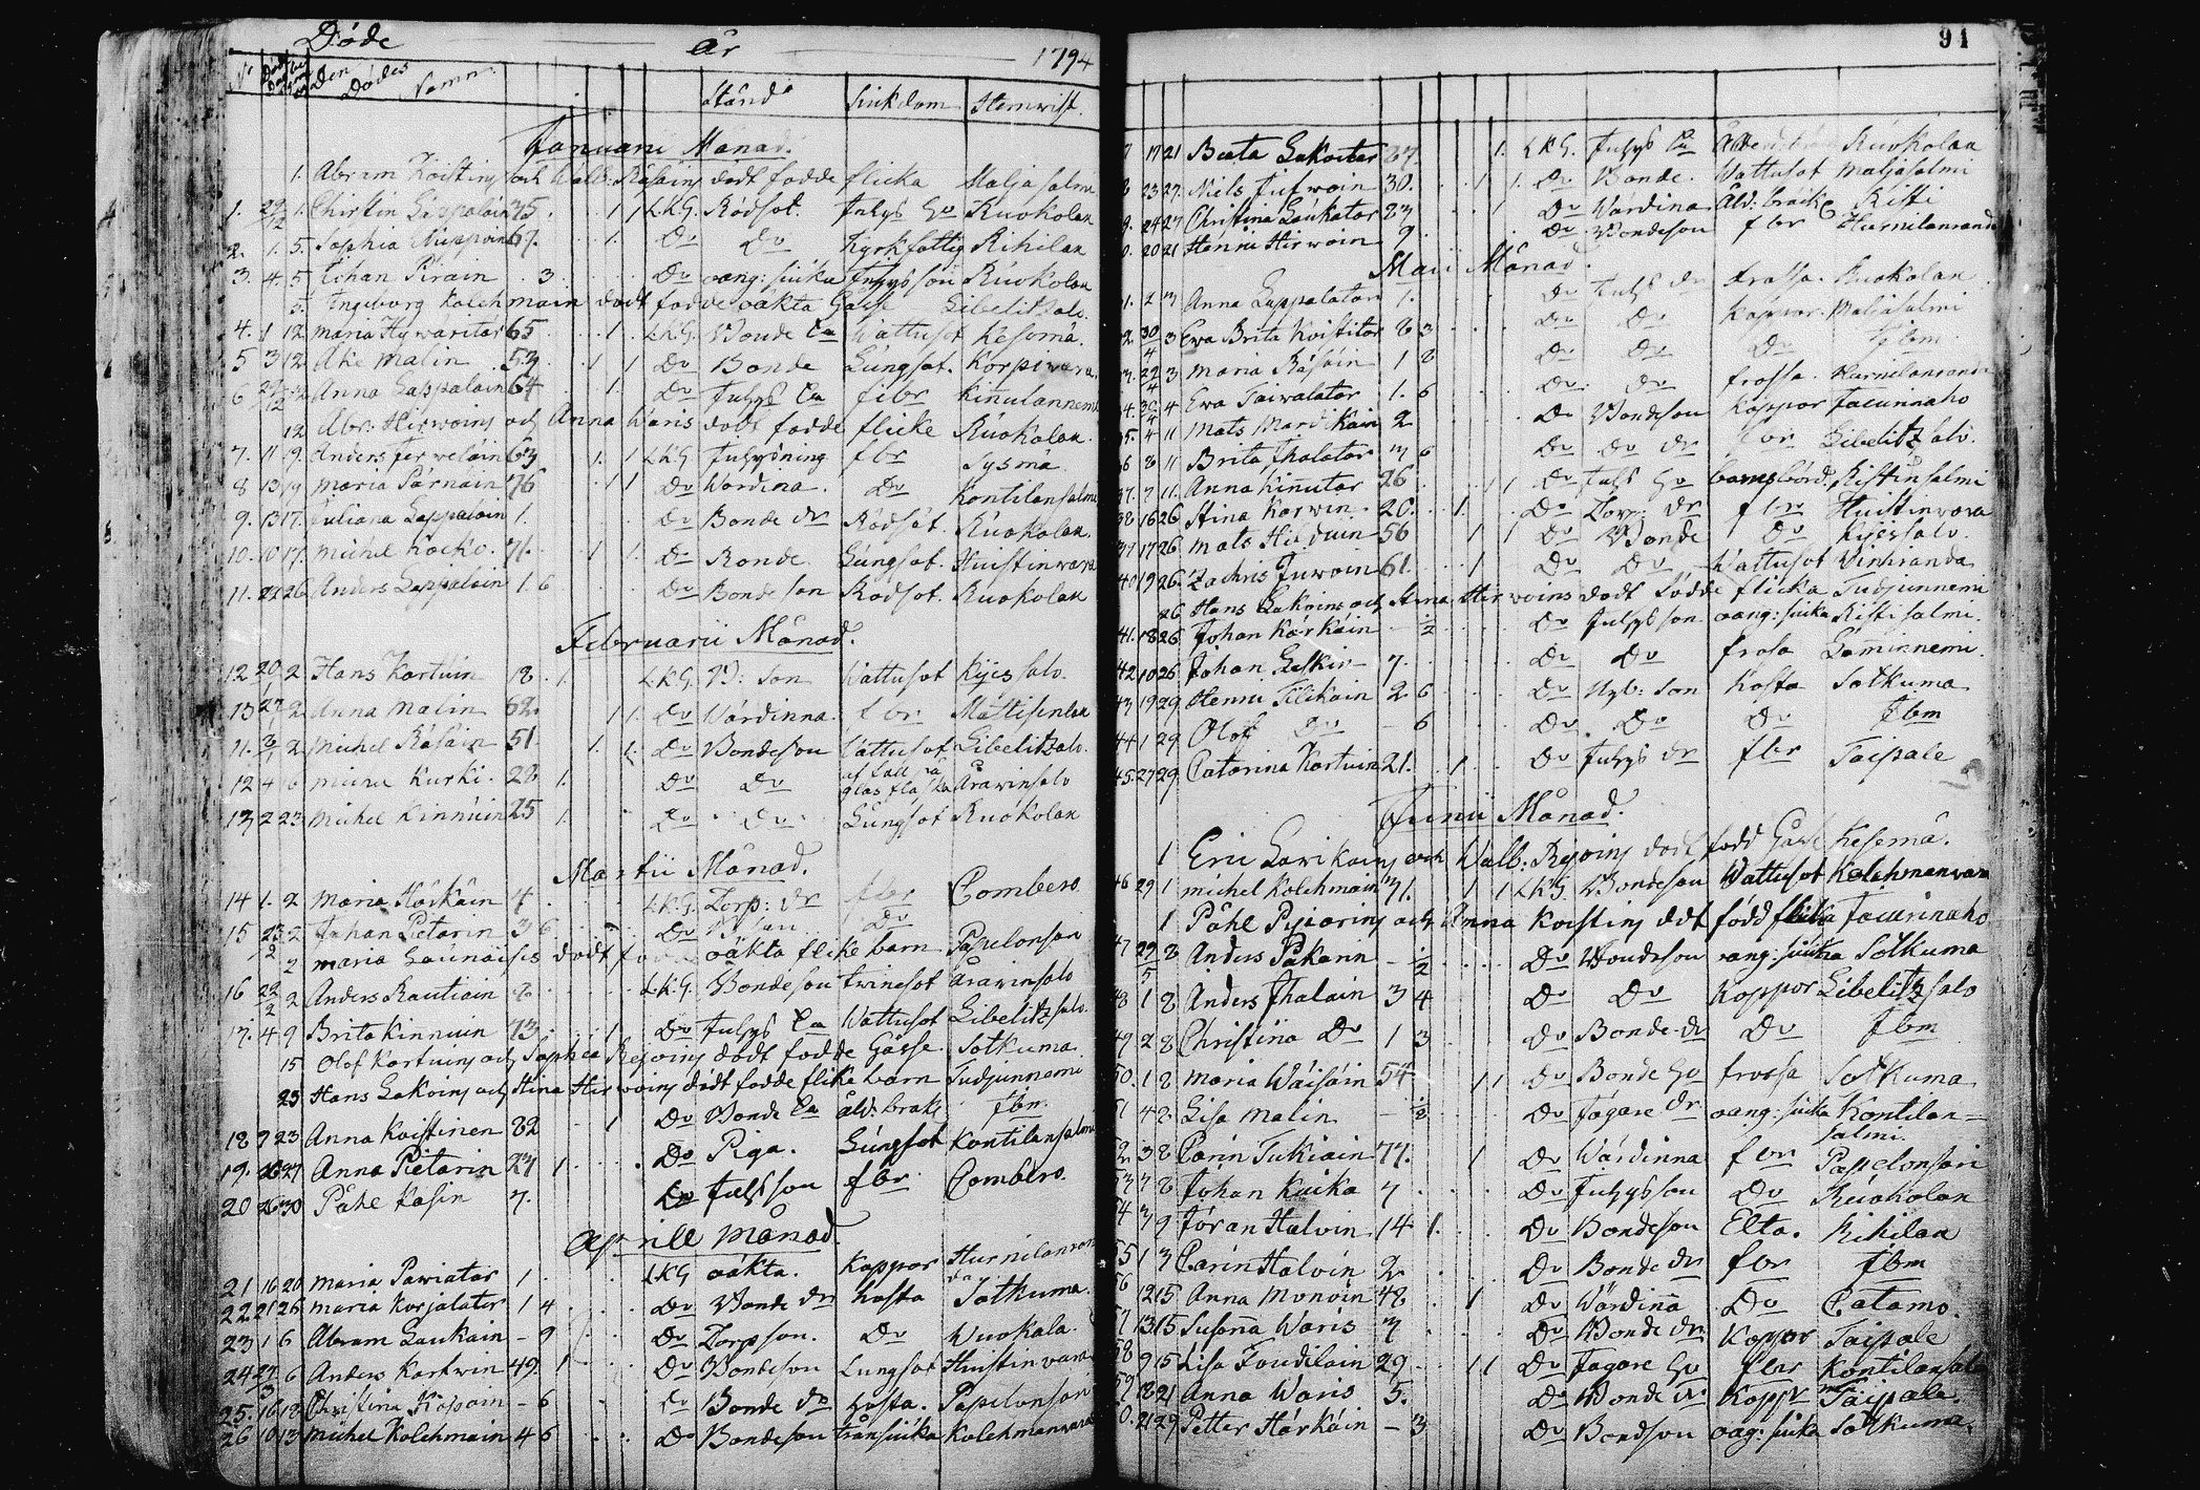 Döde år 1794
No Den Dödes Namn Stånd Siukdom Hemwist.
Januarii Månad.
1. Abram Koistins och Walb: Räsäins dödt födde flicka Maljasalmi
1. 29/12 1. Christin Lappalain 35 . . 1 1 LKG. Rödsot. Inhys Hu Ruokolax
2. 1. 5. Sophia Nuppoin 67. . . 1. Do Do Kyrkfattig Rihilax
3. 4. 5 Johan Piräin . 3 . . . . Do oang: siuka Inhysson Ruokolax
5. Ingeborg Kolehmain dödt födde oäkta Gåsse Libelitzalo.
4. 1 12 Maria Hywaritar 65 . . 1. LKG. Bonde Ea Wattusot Kesomä.
5 3 12 Åke Malin 53. . . 1 1 Do Bonde Lungsot. Korpiwara.
6 Anna Lappalain 64 . 1. Do Inhys Ea febr Kinulannemi
12 Abr: Hirwoins och Anna Waris dödt födde flicke Ruokolax.
7. 11 9. Anders Terweläin 63 . 1. 1 LKG Inhysning fbr Sysmä
8 13 19 Maria Pärnäin 76 . 1 1 Do Wärdina. Do Kontilansalmi
9. 13 17. Juliana Lappalain 1. Do Bonde dr Rödsot. Ruokolax.
10. 10 17. Michel Kocko. 71. . 1 1. Do Bonde. Lungsot. Huistinwara
11. 22 26 Anders Lappalain 1 6 Do Bonde son Rödsot. Ruokolax
Februarii Månad.
12 20/1 2 Hans Kortuin 18 . 1. LKG. B: son Wattusot Kijessalo.
13 27/1 2 Anna Malin 62. 1 1. Do Wärdinna. fbr Mattisenlax
11. 2 Michel Räsäin 51. 1. 1. Do Bondeson Wattusot Libelitzalo.
12 4 6 Michel Kurki. 28 1. Do Do af fall på glas flaska Arawinsalo
13 2 23 Michel Kinnuin 25 1. Do Do Lungsot Ruokolax
Martii Månad.
14 1. 2 Maria Härkäin 4 LKG. Torp: dr fbr Combero
15 23/2 2 Johan Pietarin 3 6 Do Do
2 Maria Launäises dödt födde oäkta flike barn Papelonsari
16 22/2 2 Anders Rautiain LKG. Bondeson trinesot Arawinsalo
17. 4 9 Brita Kinnuin 73 . . 1. Do Inhys Ea Wattusot Libelitzsalo.
15 Olof Kortuins och Sophia Rejoins dödt födde Gåsse Sotkuma
23 Hans Lakoins och Stina Hirwoins dödt födde flike barn Tudjunnemi
18 9 23 Anna Koistinen 82 . 1 Do Bonde Ea åld: brakl Ibm.
19. 26 27 Anna Pietarin 27 1. . . Do Piga. Lungsot Kontilansalmi
20 26 30 Påhl Kasin 7. Do Inhysson fbr Combero.
Aprill Månad.
21 16 20 Maria Pawiatar 1 LKG oäkta. Koppor Hurnilanranda
22 21 26 Maria Korjalatar 1 4 . . Do Bonde dr hosta Sotkuma.
23 1 6 Abram Laukain - 9 Do Torpson. Do Wuokala.
24 27/3 6 Anders Kortwin 49. 1 Do Bondeson Lungsot Huistinwara
25. 16 18 Christina Kopoin - 6 Do Bonde dr hosta. Papelonsari
26 10 13 Michel Kolehmain 4 6 Do Bondeson Kolehmanwara
91
17 21 Beata Lakoitar 87. 1. LKG. Inhys Ea Ruokolax
23 27. Niels Jufwoin 30. . . 1 1. Do Bonde. Wattusot Maljasalmi
9. 24 27 Christina Laukatar 83 . 1 Do Wärdina Åld: bräckl Risti
20 21 Henric Hirwoin 9 Do Bondeson fbr Hurnilanranda
Maii Månad.
1. 2 3 Anna Lappalatar 1. . Do Inhys dr frossa. Ruokolax
2. 30/4 3 Ewa Brita Koistitar 8 3 Do Do Koppor. Maljasalmi
3. 29/4 3 Maria Räsäin 1 8 Do Do Do Ibm
4. 30/4 4 Ewa Taiwalatar 1. 6 Do Do frossa. Hurnilanranda
5. 4 11 Mats Mardikain 2 Do Bondeson Koppor Jacunnaho
36 8 11 Brita Ihalatar 3 6 Do Do dr fbr Libelitzsalo.
37. 7 11. Anna Kinutar 26 . . 1 1 Do Inhs Hu barnsbörd, Ristinsalmi
38 16 26 Stina Korwin. 20. . 1. Do Torp: dr fbr Huistinwara
39 17 26 Mats Hilduin 56 1 1 Do Bonde Do Kijessalo.
40 19 26. Zachris Juwoin 61. . 1 Do Do Wattusot Winiranda
26 Hans Lakoins och Stina Hirwoins dödt födde flicka Tudjunnemi
41. 18 26 Johan Kärkäin - 1/2 Do Inhysson oang: siuka Ristisalmi.
42 10 26 Johan Leskin 7. Do Do frosa Laminnemi.
43 19 29 Henric Tilikain 2 6 Do Nyb: son hosta Sotkuma
44 1 29 Olof Do - 6 Do Do Do Ibm
45. 27 29. Catarina Kortuin 21. . 1. Do Inhys dr fbr Taipale
Junii Månad.
1 Eric Larikains och Walb: Rejoins dödt född Gåsse Kesemä.
46 29 1 Michel Kolehmain 71. 1 1 LKG. Bondeson Wattusot Kolehmanwara
1 Påhl Pyioring och Anna Koistins ddt född flicka Jacunnaho
47 29/5 8 Anders Pakarin - 1/2 Do Bondeson oang: siuka Sotkuma
48 1 8 Anders Ihalain 3 4 Do Do Koppor Libelitzsalo
49 2 8 Christina Do 1 3 Do Bonde dr Do Ibm
50. 1 8 Maria Wäisäin 54 1 1 Do Bonde Hu frossa Sotkuma
51 4 8. Lisa Malin - Do Jägare Dr oang: siuka Kontilan=salmi.
52. 3 8 Carin Tukiain 77. 1 Do Wärdinna fbr Papelonsari
53 7 8 Johan Kuika 7 Do Inhysson Do Ruokolax
54 3 9 Jöran Halvin 14 1. Do Bondeson Elta. Rihilax
55 1 3 Carin Halvin 2 Do Bonde Dr fbr Ibm
56 12 15 Anna Monoin 48 1 Do Wärdina Do Catamo.
57 13 15 Susanna Waris 7 Do Bonde Dr. Koppor Taipale
58 9 15 Lisa Joudilain 29 1 1 Do Jagare Hu fbr Kontilansalmi
59 18 21 Anna Waris 5. Do Bonde dr Koppr Taipale.
60. 21 29 Petter Härkäin - 3 Do Bondson oag: siuka Sotkuma.